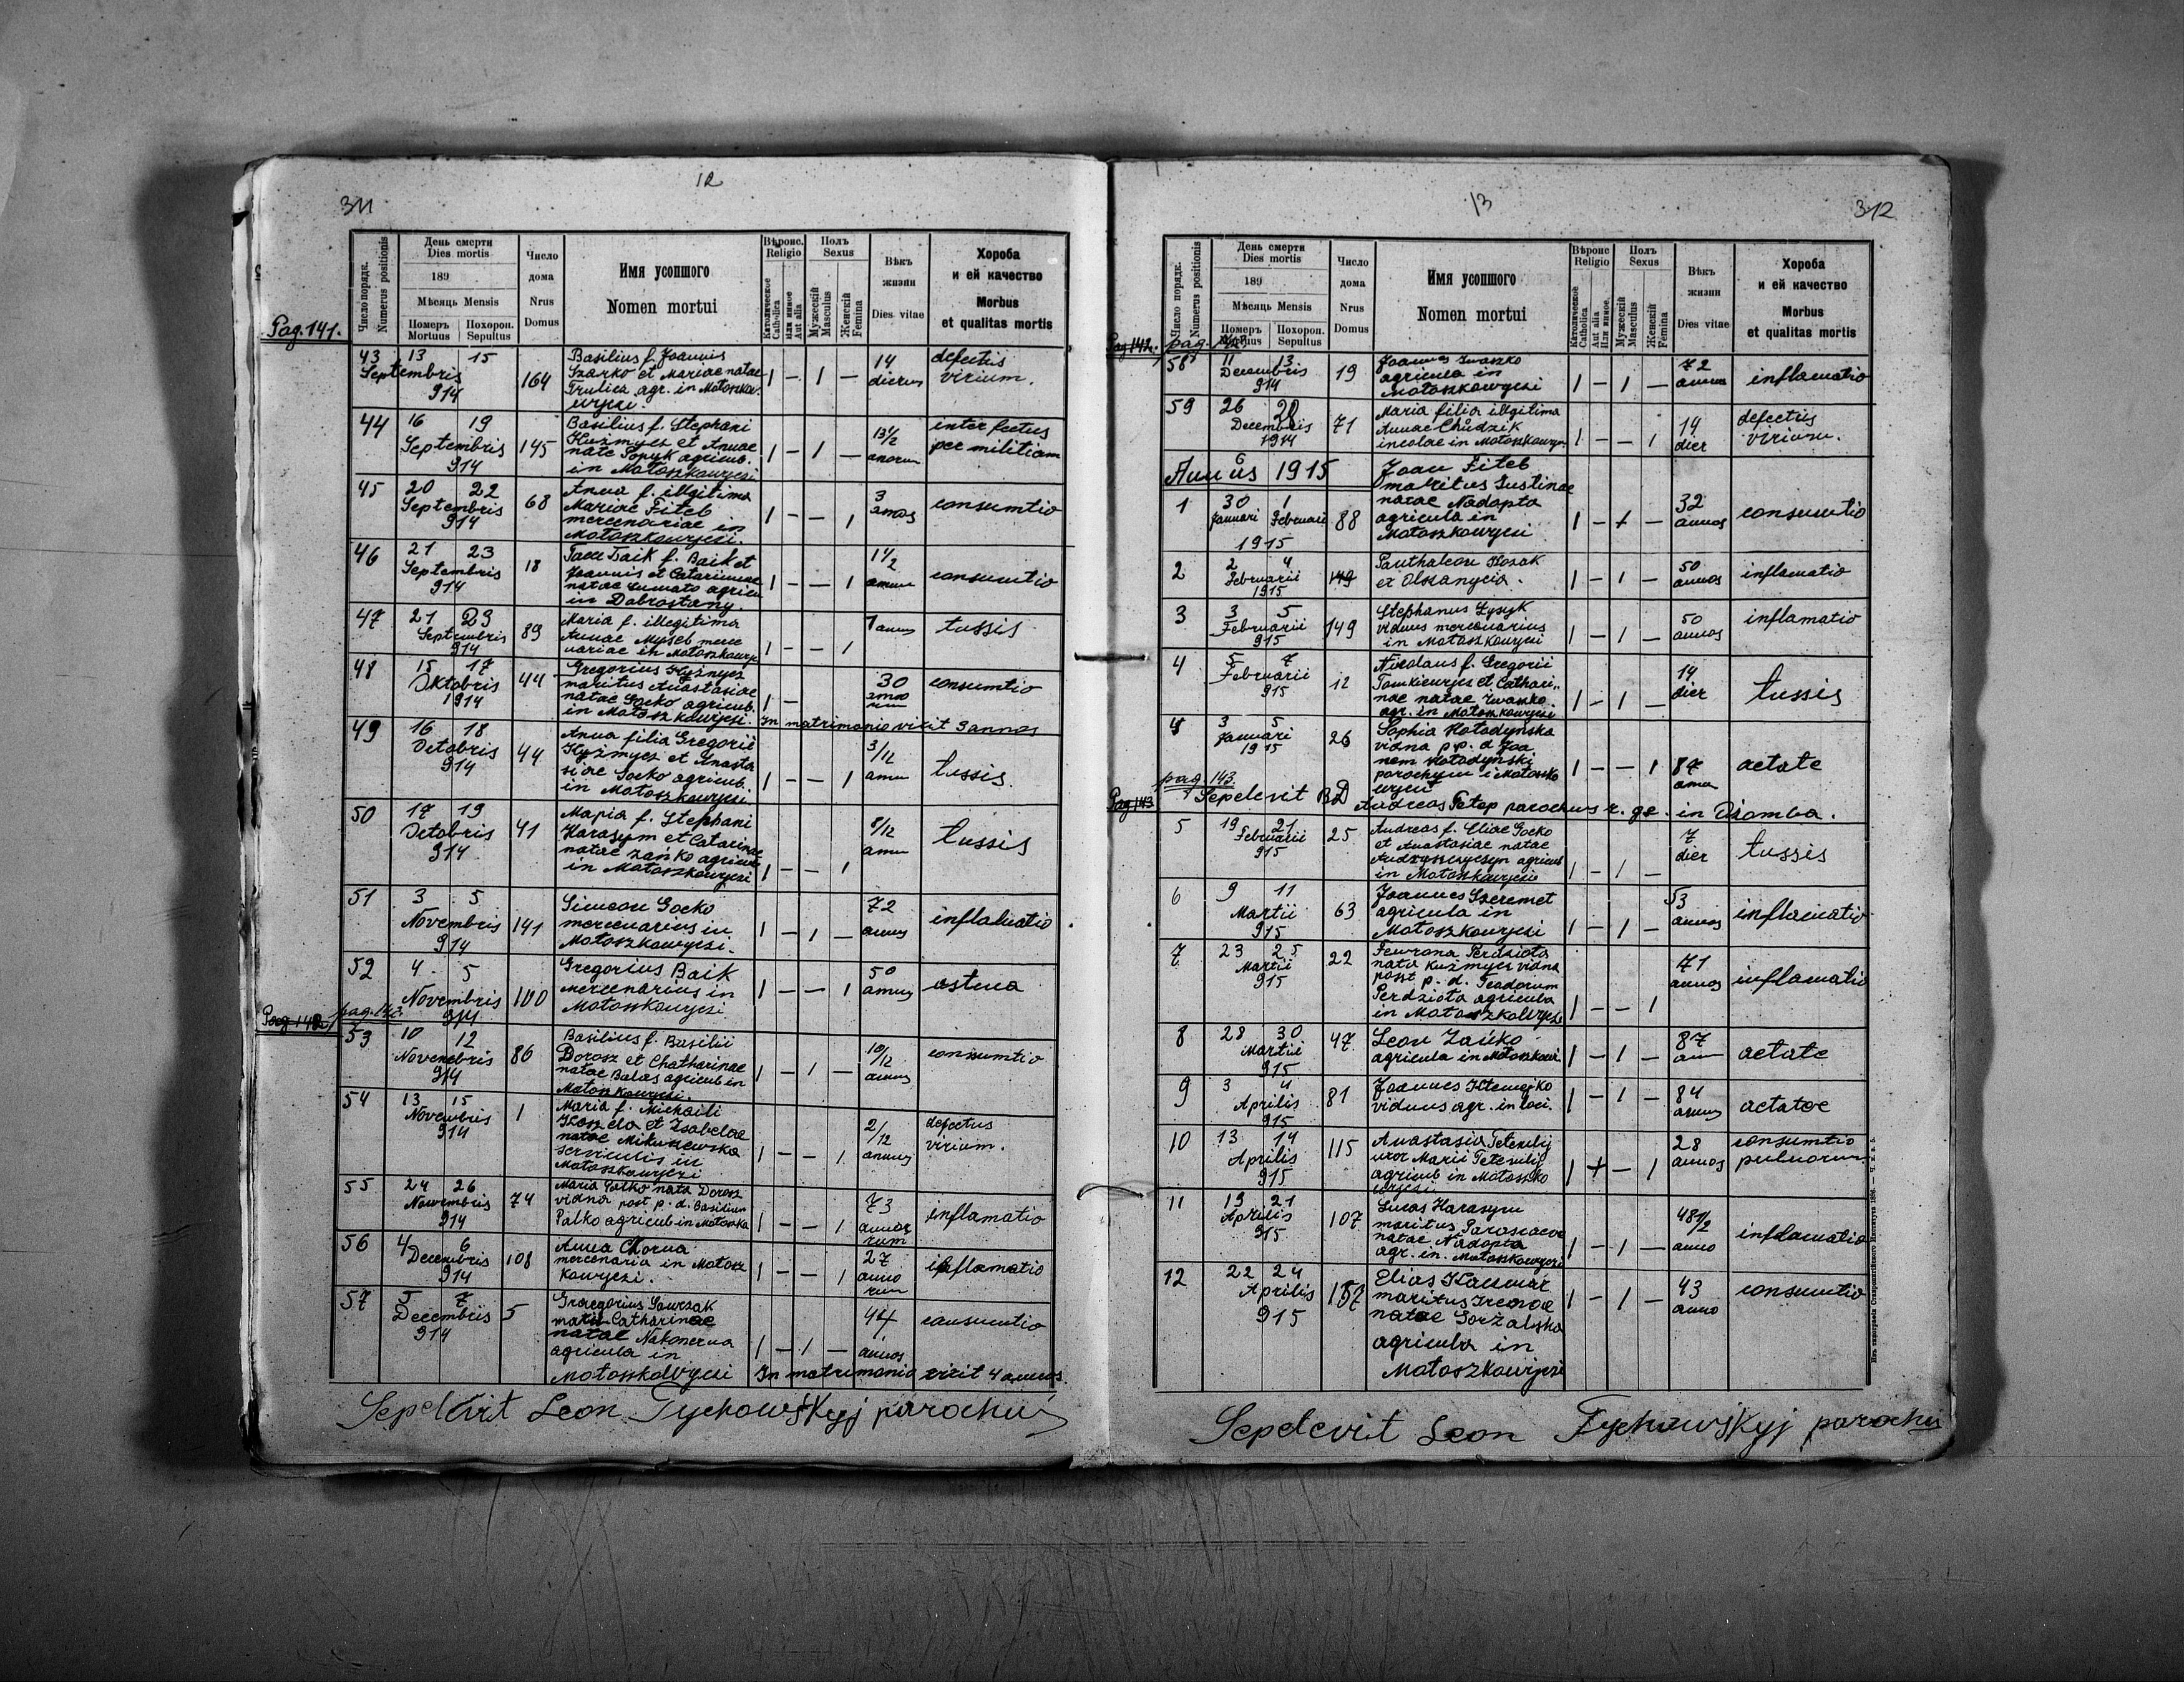 12
311
Pag. 141.
Число порядк.
Numerus positionis
День смерти
Dies mortis
189
Мѣсяць Mensis
Померъ
Mortuus
Похорон.
Sepultus
Число
дома
Nrus
Domus
Имя усопшого
Nomen mortui
Вѣроис.
Religio
Католическое
Catholica
Или инное
Aut alia
Полъ
Sexus
Мужескій
Masculus
Женскій
Femina
Вѣкъ
жизни
Dies vitae
Хороба
и ей качество
Morbus
et qualitas mortis
43 13 15
Septembris
914
164
Basilius f. Joannis
Szarko et Mariae natae
Trulica agr. in Motoszko
wyczi.
1 – 1 –
14
dierum
defectis
virium.
44 16 19
Septembris
914
145
Basilius f. Stephani
Kuzmycz et Annae
nate Popyk agricub.
in Motoszkowyczi
1 – 1 –
13 1/2
anorum
interfectus
per militiam
45 20 22
Septembris
914
68
Anna f. illgitima
Mariae Fiteb
mercenariae in
Motoszkowyczi.
1 – – 1
3
annos
consumtio
46 21 23
Septembris
914
18
Baik f. Baik et
Joannis et Catarinae
natae agricu
in Dobrostany.
1 – – 1
1 1/2
annum
consumtio
47 21 23
Septembris
914
89
Maria f. illegitima
Annae Myseb merce
nariae in Motoszkowy
1 – – 1
1 annus
tussis
48 15 17
Oktobris
1914
44
Gregorius Hyżnycz
maritus Anastasiae
natae Socko agricub.
in Motoszkowyczi.
1 –
30
anno
rum
consumtio
In matrimonio vixit 9 annos
49 16 18
Octobris
914
44
Anna filia Gregorii
Hyżmycz et Anasta
siae Socko agricub.
in Motoszkowyczi
1 – – 1
3/12
annu
tussis.
50 17 19
Octobris
914
41
Maria f. Stephani
Harasym et Catarinae
natae Zańko agricub
in Motoszkowyczi
1 – – 1
8/12
annu
tussis
51 3 5
Novembris
914
141
Simeon Socko
mercenarius in
Motoszkowyczi.
1 – 1 –
72
annus
inflamatio
52 4. 5
Novembris
914
100
Gregorius Baik
mercenarius in
Motoszkowyczi
1 – – 1
50
annus
astma
Pag. 142
pag. 142.
53 10 12
Novembris
914
86
Basilius f. Basilii
Dorosz et Chatharinae
natae Balas agricub in
Motoszkowyczi.
1 – 1 –
10/12
annus
consumtio
54 13 15
Novembris
914
1
Maria f. Michaili
Koszela et Isabelae
natae Mikuszewska
serviculis in
Motoszkowyczi
1 – – 1
2/12
annus
defectus
virium.
55 24 26
Nowembris
914
74
Maria Palko nata Dorosz
vidna post p. d. Basilium
Palko agricub in Motoszko
1 – – 1
73
annor
rum
inflamatio
56 4 6
Decembris
914
108
Anna Chorna
mercenaria in Motosz
kowyczi.
1 – – 1
27
anno
rum
inflamatio
57 5 7
Decembris
914
5
Gregorius Sawczak
marit Catharinae
natae Nakonerna
agricula in
Motoszkowyczi
1 – 1 –
44
annos
consumtio
In matrimonio vixit 4 annos.
Sepelevit Leon Tychowśkyj parochus
13
312
Число порядк.
Numerus positionis
День смерти
Dies mortis
189
Мѣсяць Mensis
Померъ
Mortuus
Похорон.
Sepultus
Число
дома
Nrus
Domus
Имя усопшого
Nomen mortui
Вѣроис
Religio
Католическое
Catholica
Aut alia
Или иное.
Полъ
Sexus
Мужескій
Masculus
Женскій
Femina
Вѣкъ
жизни
Dies vitae
Хороба
и ей качество
Morbus
et qualitas mortis
Pag 142.
pag. 142.
58 11 13
Decembris
914
19
Joannes Iwaszko
agricula in
Motoszkowyczi
1 – 1 –
72
annus
inflamatio
59 26 28
Decembris
1914
71
Maria filia illgitima
Annae Chudzik
incolae in Motoszkowycz
1 – – 1
14
dier
defectus
virium.
Annus 1915
1 30 1
Januari Februari
1915
88
Joan Fiteb
maritus Justinae
natae Nadopta
agricula in
Motoszkowyczi
1 – 1 –
32
annos
consumtio
2 2 4
Februarii
1915
149
Panthaleon Kozak
ex Olszanycia.
1 – 1 –
50
annos
inflamatio
3 3 5
Februarii
915
149
Stephanus Łysyk
viduus mercenarius
in Motoszkowyczi
1 – 1 –
50
annos
inflamatio
4 5 7
Februarii
915
12
Nicolaus f. Gregorii
Tomkiewycz et Cathari„
nae natae Iwaszko.
agr. in Motoszkowyczi
1 – 1 –
14
dier
tussis
4 3 5
Januari
1915
26
Sophia Hotodynska
vidna p p. d Joa
nem Hotodynski
parochum i Motoszko
wyczi
1 – – 1
87
annu
aetate
pag. 143.
Pag 143
Sepelevit BD Andreas Petep parochus r. gr. in Dżomba.
5 19 21
Februarii
915
25
Andreas f. Eliae Socko
et Anastasiae natae
Andryszczyszyn agricub
in Motoszkowyczi
1 – 1 –
7
dier
tussis
6 9 11
Martii
915
63
Joannes Szeremet
agricula in
Motoszkowyczi
1 – 1 –
53
annos
inflamatio
7 23 25
Martii
915
22
Fewrona Perdziota
nata Kuzmycz vidna
post p. d. Teodorum
Perdziota agricula
in Motoszkowycz
1 – – 1
71
annos
inflamatio
8 28 30
Martii
915
47
Leon Zańko
agricula in Motoszkowi
1 – 1 –
87
ann
aetate
9 3 4
Aprilis
915
81
Joannes
viduus agr. in loci.
1 – 1 –
84
annus
aetatae
10 13 14
Aprilis
915
115
Anastasia Petembij
uxor Marii Petembij
agricub in Motoszko
wyczi
1 + – 1
28
annos
consumtio
pulmorum
11 19 21
Aprilis
915
107
Lucas Harasym
maritus Parascaeve
natae Nadopta
agr. in. Motoszkowyczi
1 – 1 –
48 1/2
anno
inflamatio
12 22 24
Aprilis
915
157
Elias Kaczmar
maritus Irenae
natae Gorżalska
agricula in
Motoszkowiczi
1 – 1 –
43
anno
consumtio
Sepelevit Leon Tychowśkyj parochus
Изъ типографіи Ставропигійского Института 1896.